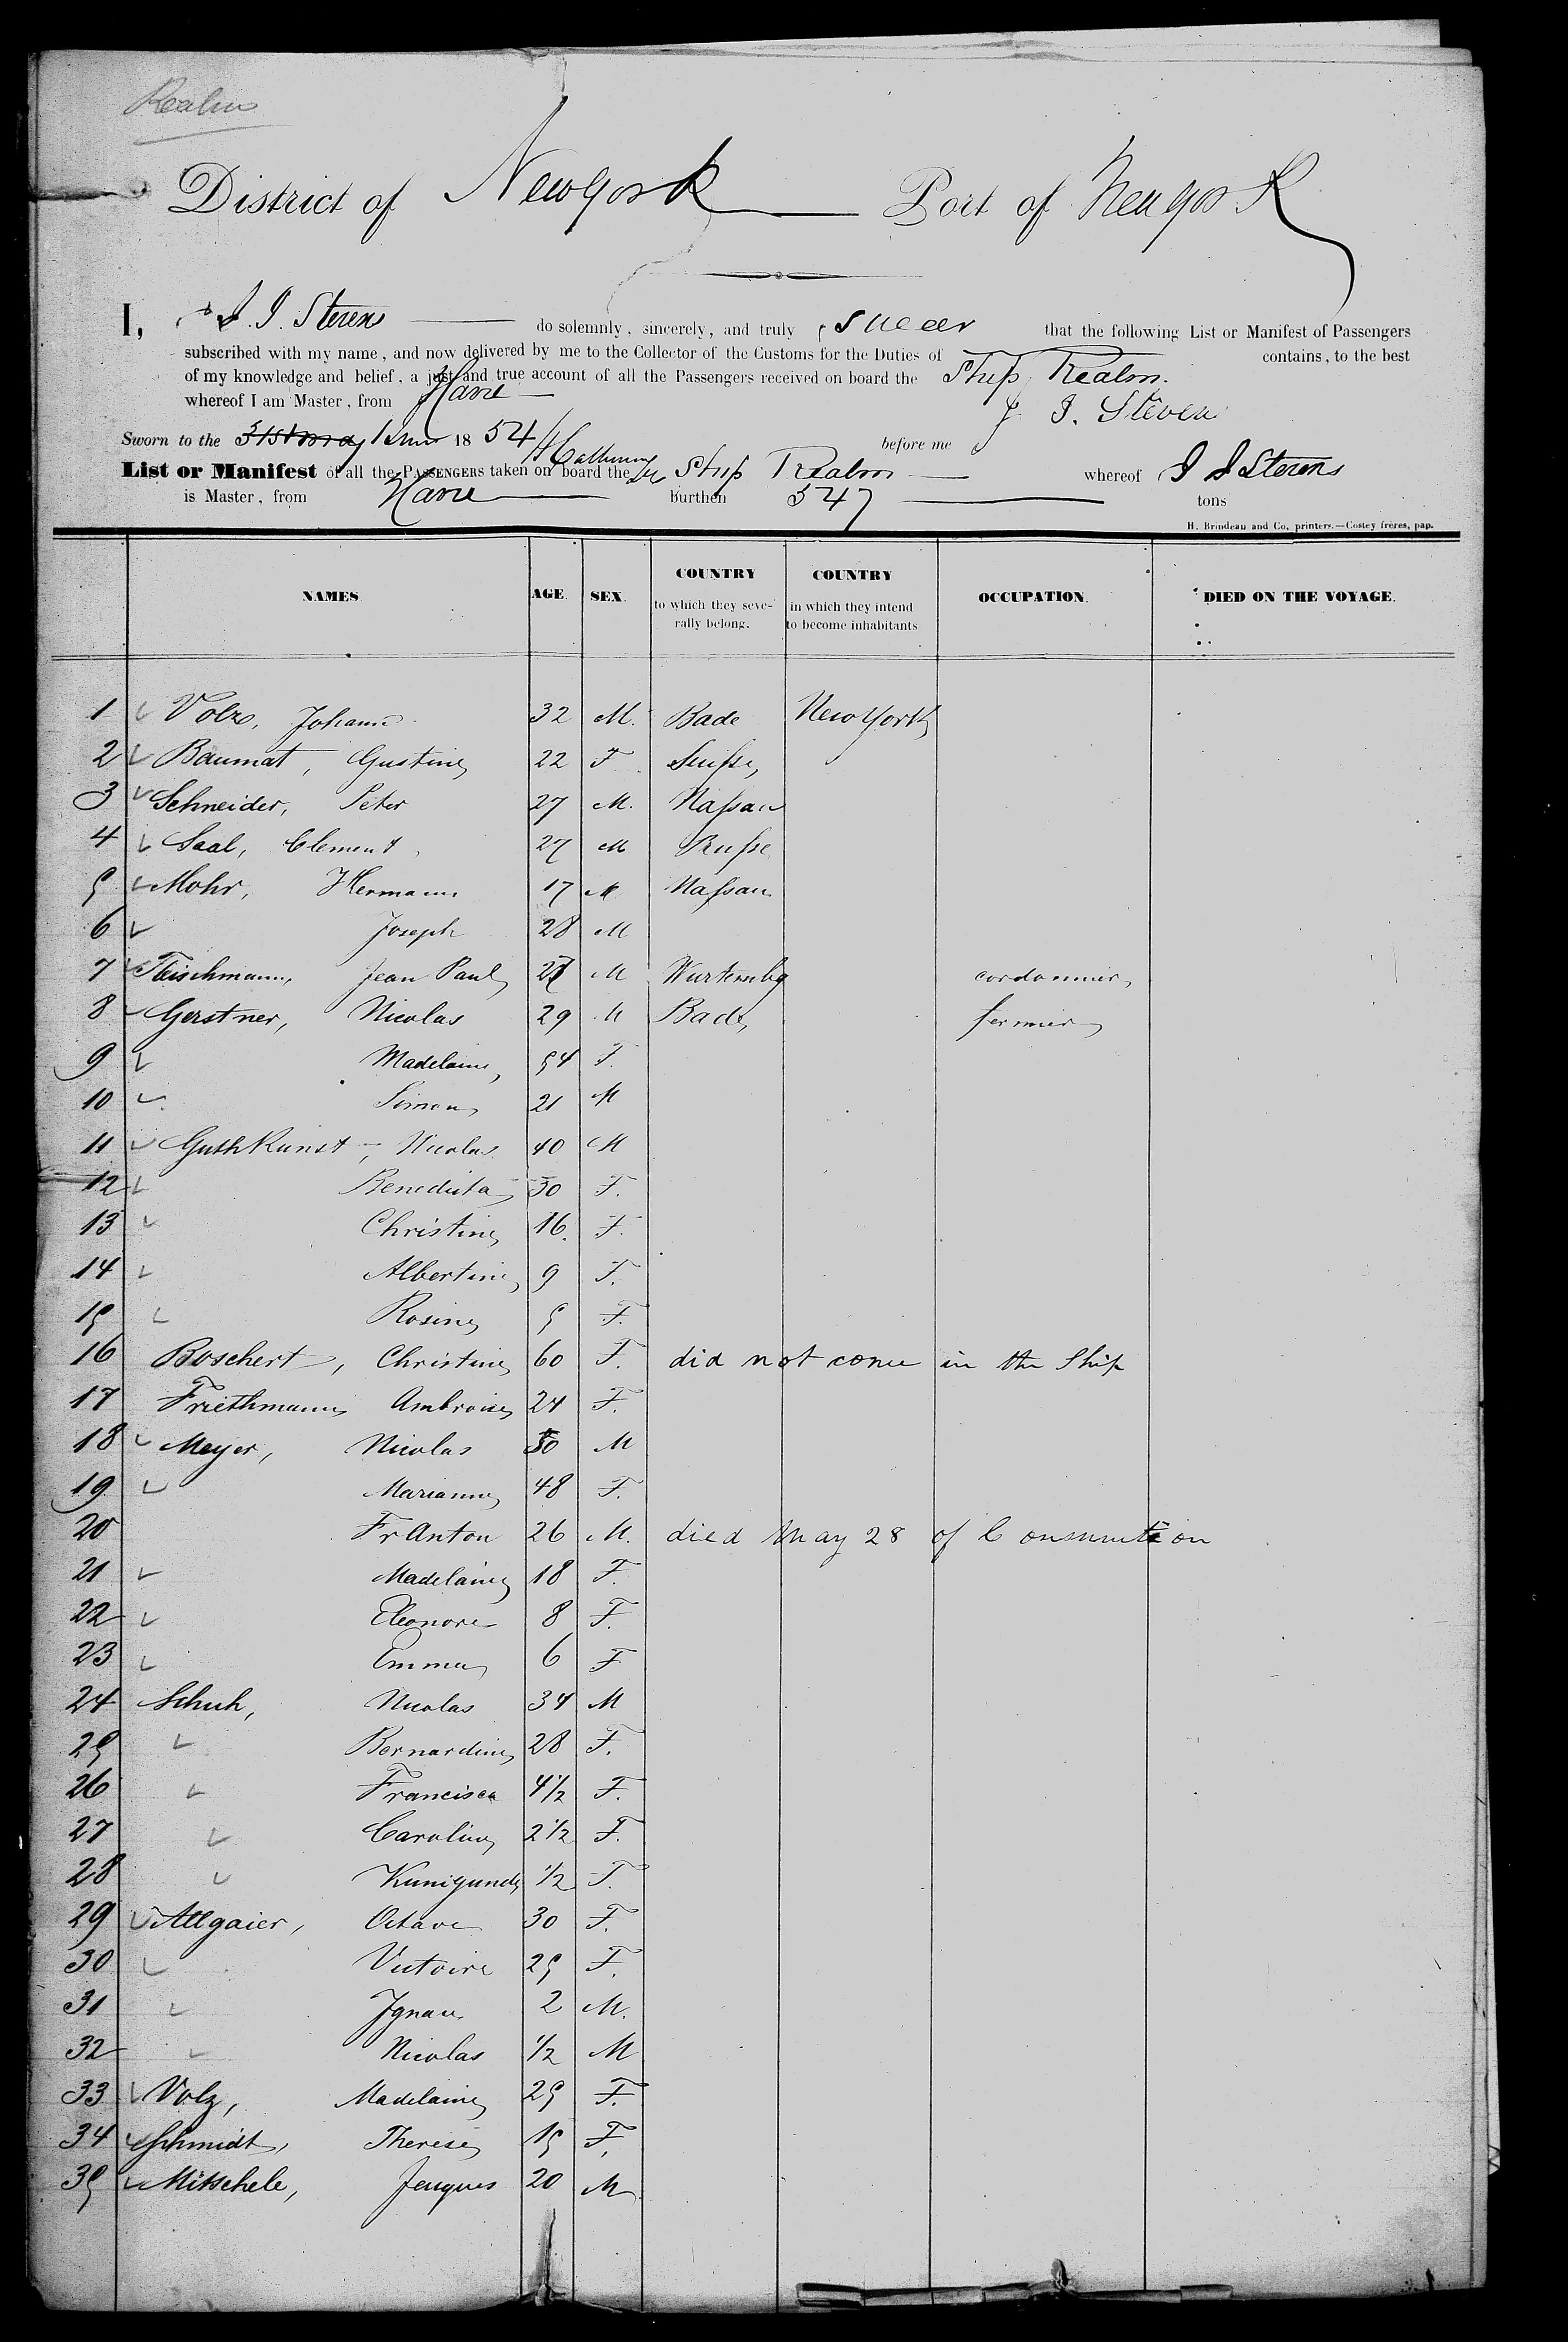 Realm
District of New York Port of New York
I, J. J. Stevens do solemnly, sincerely, and truly swear that the following List or Manifest of Passengers
subscribed with my name, and now delivered by me to the Collector of the Customs for the Duties of contains, to the best
of my knowledge and belief, a just and true account of all the Passengers received on board the Ship Realm.
whereof I am Master, from Havre
J. J. Stevens
Sworn to the 31st May 1 June 1854 before me
List or Manifest of all the PASSENGERS taken on board the Ship Realm whereof J J Stevens
is Master, from Havre burthen 547 tons
H. Brindeau and Co, printers.—Costey frères, pap.
NAMES AGE. SEX. COUNTRY to which they seve-rally belong. COUNTRY in which they intend to become inhabitants OCCUPATION. DIED ON THE VOYAGE.
1 Volz, Johann 32 M. Bade New York
2 Baumat, Gustine 22 F Suisse
3 Schneider, Peter 27 M. Nassau
4 Saal, Clement 27 M Prusse
5 Mohr, Hermann 17 M Nassau
6 Joseph 28 M
7 Fleischmann, Jean Paul M Wurtembg cordonnier
8 Gerstner, Nicolas 29 M Bade, fermier
9 Madelaine, 54 F.
10 Simon 21 M
11 Guthkunst, Nicolas 40 M
12 Benedicta 30 F.
13 Christine 16. F.
14 Albertine 9 F.
15 Rosine 5 F.
16 Boschert, Christine 60 F. did not come in the Ship
17 Friethmann Ambroise 24 F.
18 Meyer, Nicolas 50 M
19 Marianne 48 F.
20 Fr Anton 26 M. died May 28 of Consumtion
21 Madelaine 18 F.
22 Eleonore 8 F.
23 Emma 6 F
24 Schuh, Nicolas 34 M
25 Bernardine 28 F.
26 Francisca 4 1/2 F.
27 Caroline 2 1/2 F.
28 Kunigunde 1/2 F.
29 Allgaier, Octave 30 F.
30 Victoire 25 F.
31 Ignace 2 M.
32 Nicolas 1/2 M
33 Volz, Madelaine 25 F.
34 Schmidt, Therese 15 F.
35 Mitschele, Jacques 20 M